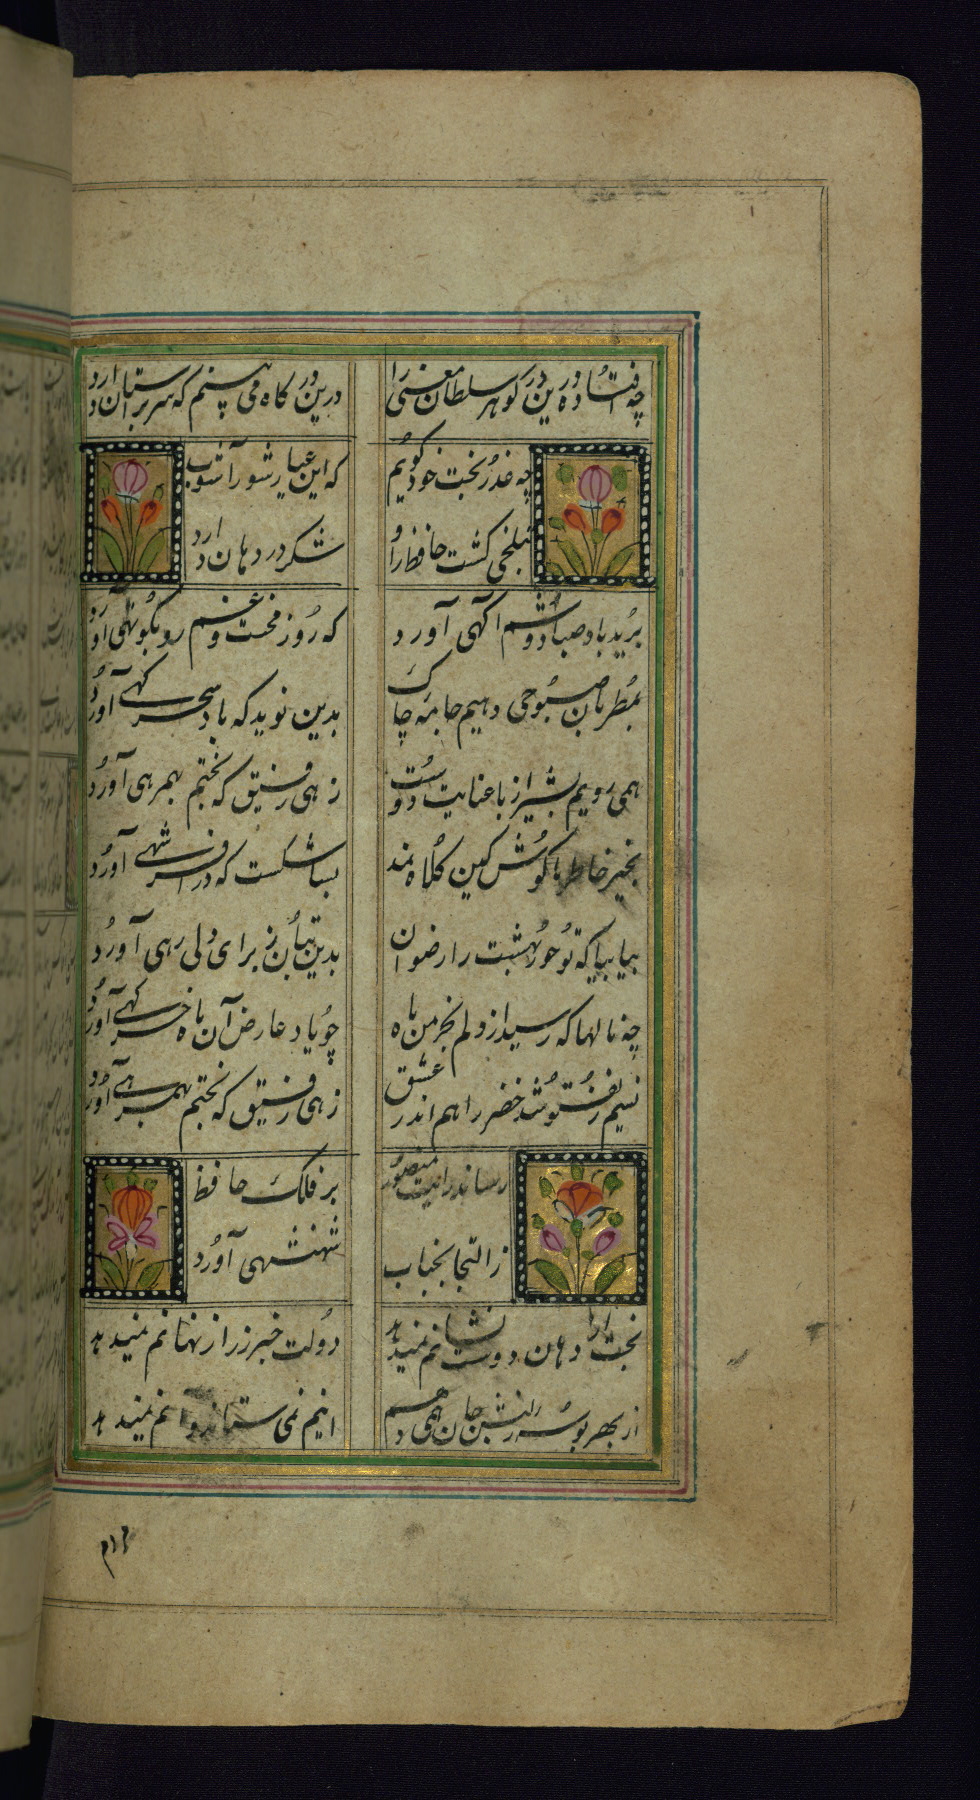 چه افتاده درین در کوهر سلطان معنی را
درین درکاه می بینم که سر بر استان دارد
چه عذر بخت خود کویم
که این عیار شور آشوب
بتلخی کشت حافظ را و
شکر در دهان دارد
برید باد صبا دوشم اکهی آورد
که روز محنت و غم رو بکوتهی آورد
بمطربان صبوحی دهیم جامه چاک
بدین نوید که باد سحرکهی آورد
همی رویم بشیراز با عنایت دوست
زهی رفیق که بختم بهمرهی آورد
بخیر خاطر ما کوش کین کلاه نمد
بسا شکست که در افسر شهی آورد
بیا بیا که تو حور بهشت را رضوان
بدین جهان ز برای دلی رهی آورد
چه نالها که رسید از دلم بخرمن ماه
چو یاد عارض آن ماه خرکهی آورد
نسیم زلف تو شد خضر راهم اندر عشق
زهی رفیق که بختم بهمرهی آورد
رساند رایت منصور
بر فلک حافظ
ز التجا بجناب
شهنشهی آورد
بخت از دهان دوست نشانم نمیدهد
دولت خبر ز راز نهانم نمیدهد
از بهر بوسه ز لبش جان همی دهم
اینم نمی ستاند و آنم نمیدهد